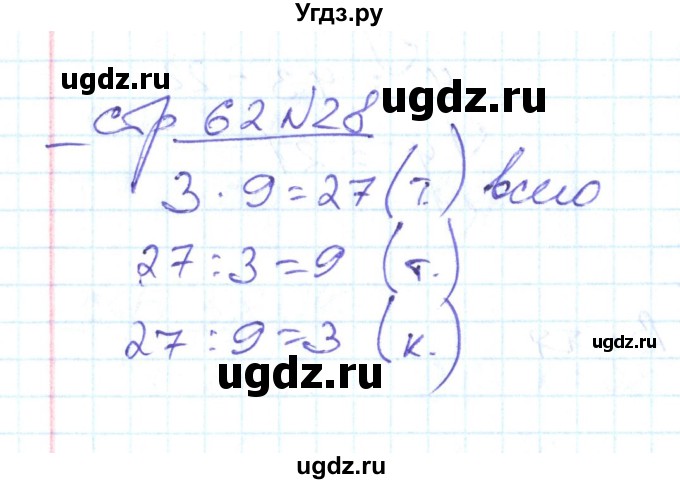 Угдз.ру
ugdz.ru
стр 62 №28 ugdz.ru
3 · 9 = 27 (т.) всего
27 : 3 = 9 (т.)
27 : 9 = 3 (к.)
ugdz.ru
ugdz.ru
ugdz.ru